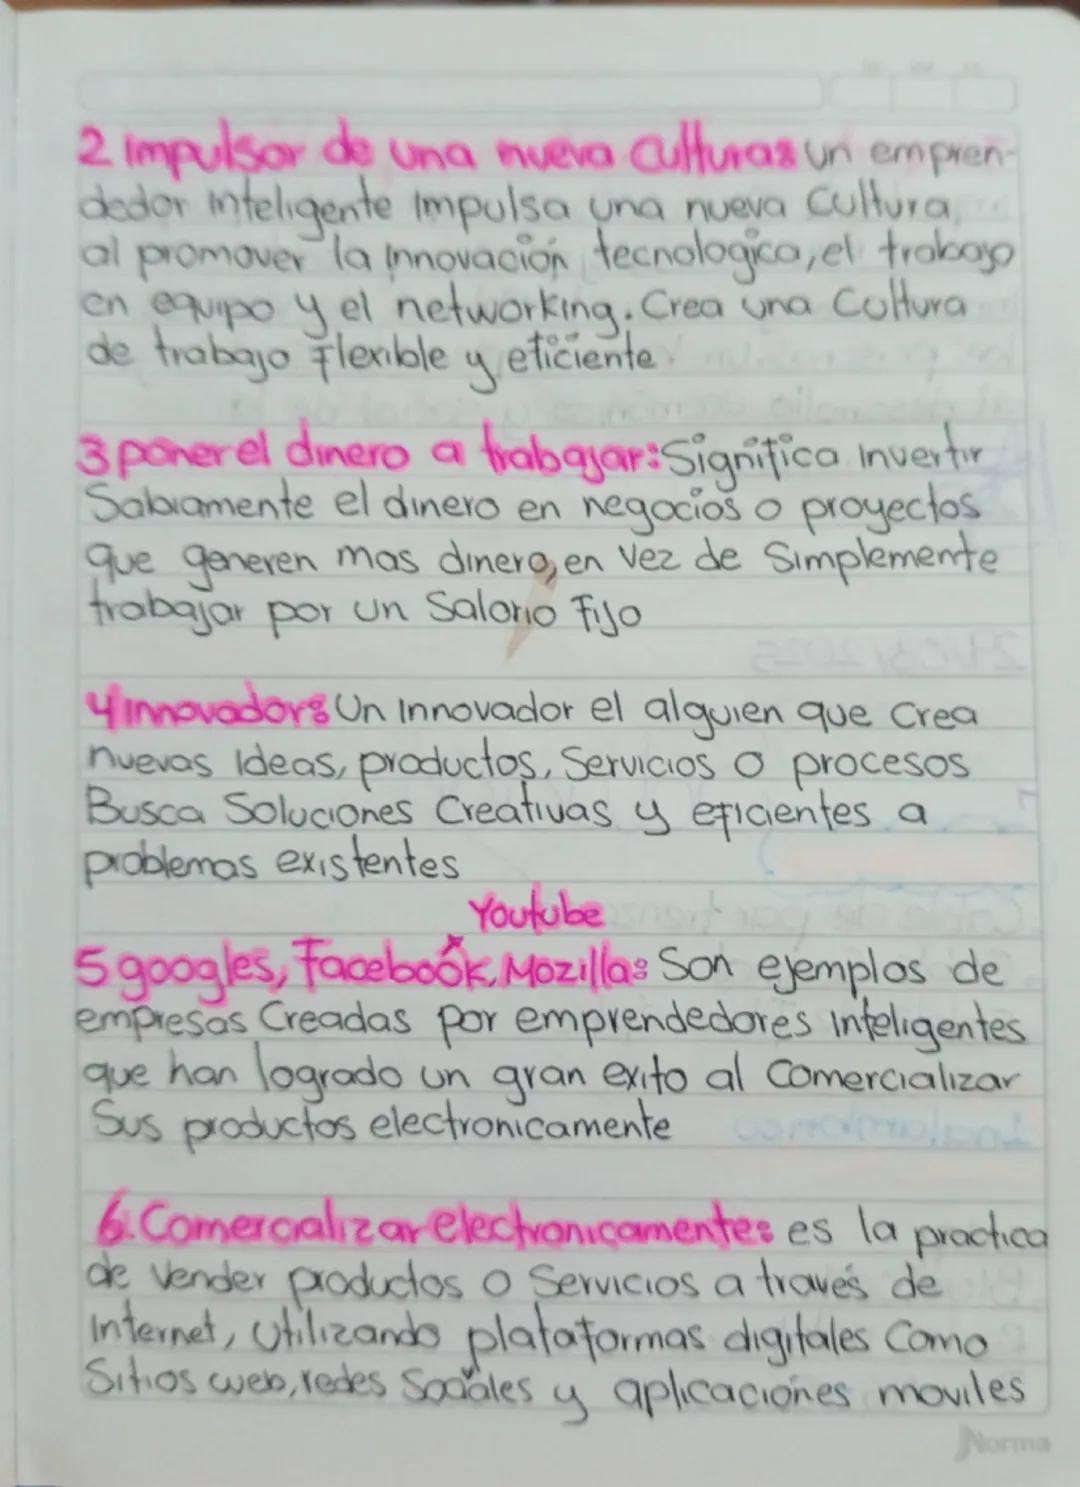 2 Impulsor de una nueva culturas un empren-
dedor inteligente impulsa una nueva cultura
al promover la innovación tecnologica, el trabajo
en equipo y el networking. Crea una cultura
de trabajo flexible y eficiente.
3 poner el dinero a trabajar: Significa invertir
Sabiamente el dinero en negocios o proyectos
que generen mas dinero, en vez de simplemente
trabajar por un Salario Fijo
4 innovador: Un innovador el alguien que crea
nuevas ideas, productos, Servicios o procesos
Busca Soluciones Creativas y eficientes a
problemas existentes
Youtube
5 googles, Facebook, Mozilla: Son ejemplos de
empresas Creadas por emprendedores inteligentes
que han logrado un gran exito al Comercializar
Sus productos electronicamente
6. Comercializar electronicamente: es la practica
de Vender productos o Servicios a través de
Internet, Utilizando plataformas digitales Como
Sitios web, redes Sociales y aplicaciones moviles
Norma